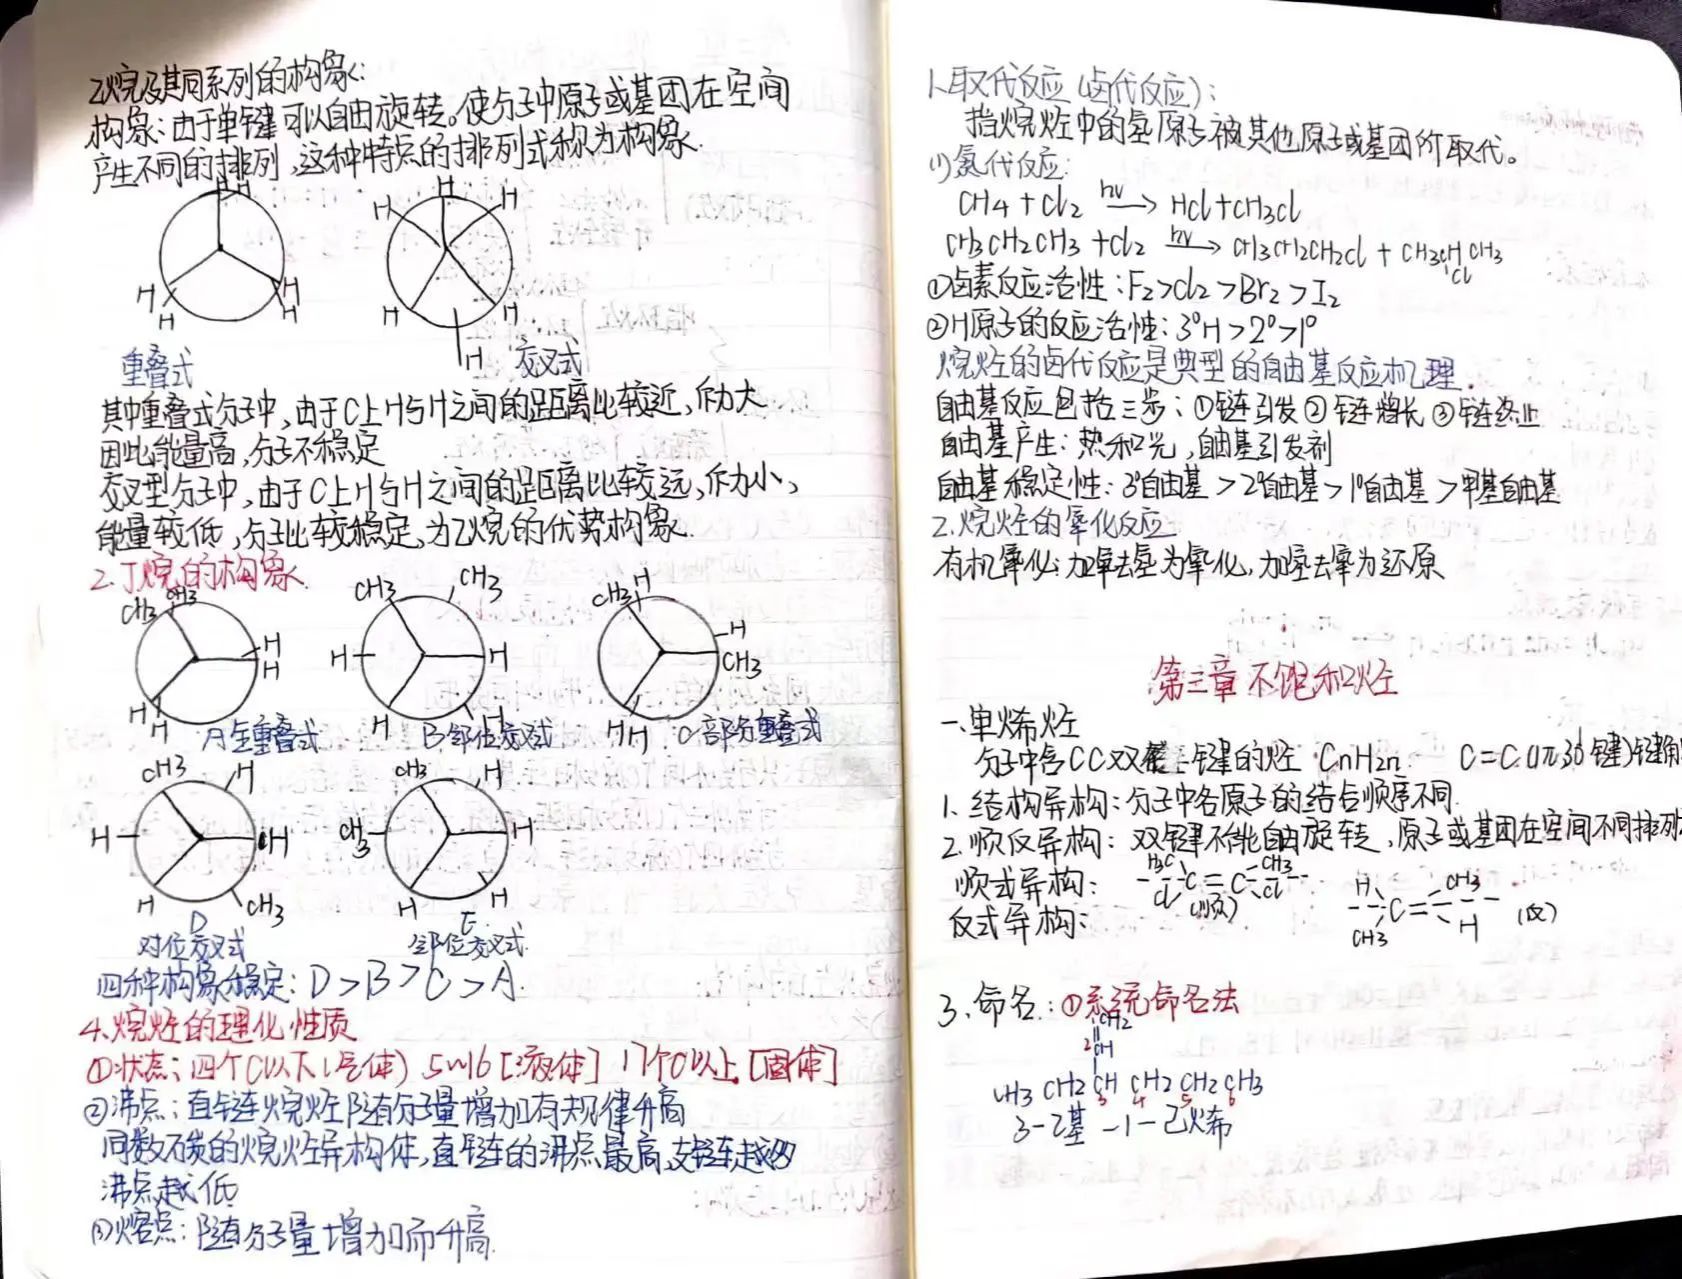 乙烷及其同系列的构象:
构象:由于单键可以自由旋转。使分子中原子或基团在空间
产生不同的排列,这种特点的排列式称为构象.
H H
H H
H H
重叠式
H
H H
H H
H
交叉式
其中重叠式分子中,由于C上H与H之间的距离比较近,作力大
因此能量高,分子不稳定
交叉型分子中,由于C上H与H之间的距离比较远,作力小、
能量较低,分子比较稳定,为乙烷的优势构象.
2.丁烷的构象.
CH3 CH3
H
H
H H
A全重叠式
CH3 CH3
H H
H H
B邻位交叉式
CH3 H
H
CH3
H H
C部分重叠式
CH3 H
H H
H CH3
D
对位交叉式
CH3 H
CH3 H
H H
E
邻位交叉式
四种构象稳定:D>B>C>A
4.烷烃的理化性质
①状态:四个C以下(气体) 5~16[液体] 17个C以上[固体]
②沸点:直链烷烃随分子量增加有规律升高
同数碳的烷烃异构体,直链的沸点最高,支链越多
沸点越低
③熔点:随分子量增加而升高.
1.取代反应(卤代反应):
指烷烃中的氢原子被其他原子或基团所取代。
(1)氯代反应:
CH4+Cl2 hv→ HCl+CH3Cl
CH3CH2CH3+Cl2 hv→ CH3CH2CH2Cl+CH3CHCH3
Cl
①卤素反应活性:F2>Cl2>Br2>I2
②H原子的反应活性:3°H>2°>1°
烷烃的卤代反应是典型的自由基反应机理.
自由基反应包括三步:①链引发②链增长③链终止
自由基产生:热和光,自由基引发剂
自由基稳定性:3°自由基>2°自由基>1°自由基>甲基自由基
2.烷烃的氧化反应
有机氧化:加氧去氢为氧化,加氢去氧为还原
第三章 不饱和烃
一.单烯烃
分子中含CC双键的烃 CnH2n. C=C(1π,3σ键)键角
1.结构异构:分子中各原子的结合顺序不同.
2.顺反异构:双键不能自由旋转,原子或基团在空间不同排列
顺式异构: H3C Cl C=C CH3 Cl (顺)
反式异构: H CH3 C= CH3 H (反)
3.命名:①系统命名法
1CH2
2CH
CH3 CH2 CH CH2 CH2 CH3
3 4 5 6
3-乙基-1-己烯